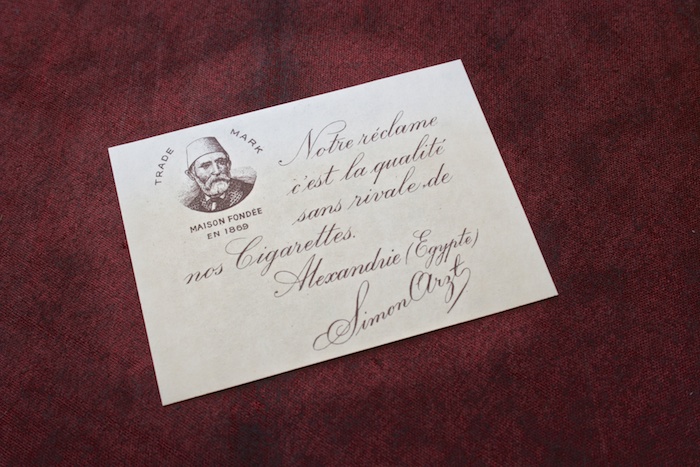 TRADE MARK
MAISON FONDÉE
EN 1869
Notre réclame
c'est la qualité
sans rivale de
nos Cigarettes.
Alexandrie (Egypte)
Simon Arzt